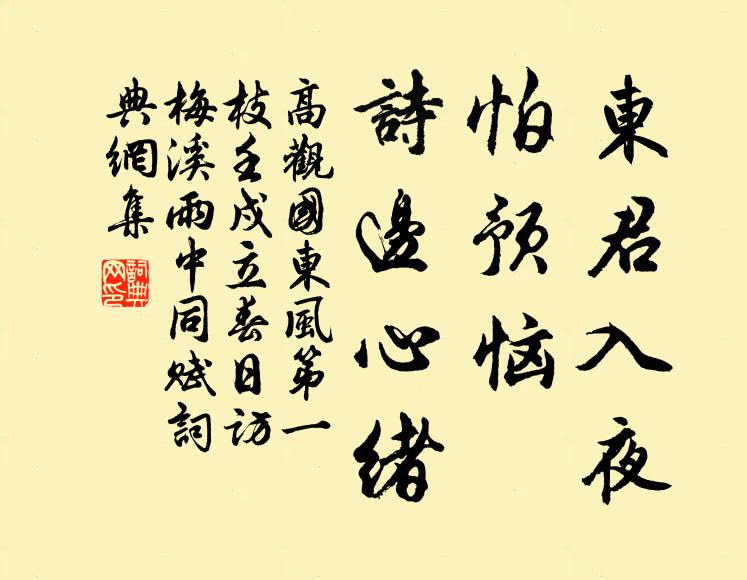 東君入夜
怕预恼
詩邊心緒
高觀國東風第一
枝壬戌立春日访
梅溪雨中同赋詞
典網集
詞典
网印